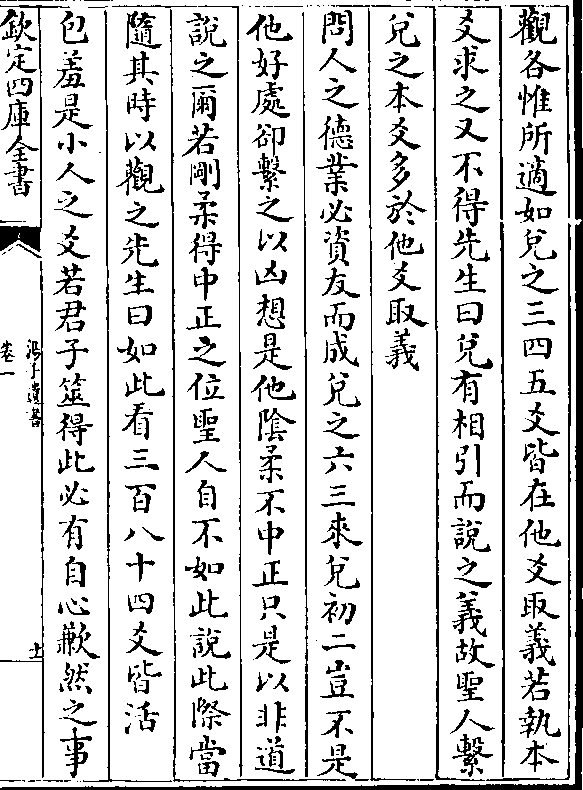 觀各惟所適如兌之三四五爻皆在他爻取義若執本
爻求之又不得先生曰兌有相引而說之義故聖人繫
兌之本爻多於他爻取義
問人之德業必資友而成兌之六三來兌初二豈不是
他好處卻繫之以凶想是他陰柔不中正只是以非道
說之爾若剛柔得中正之位聖人自不如此說此際當
隨其時以觀之先生曰如此看三百八十四爻皆活
包羞是小人之爻若君子筮得此必有自心歉然之事
欽定四庫全書
卷一